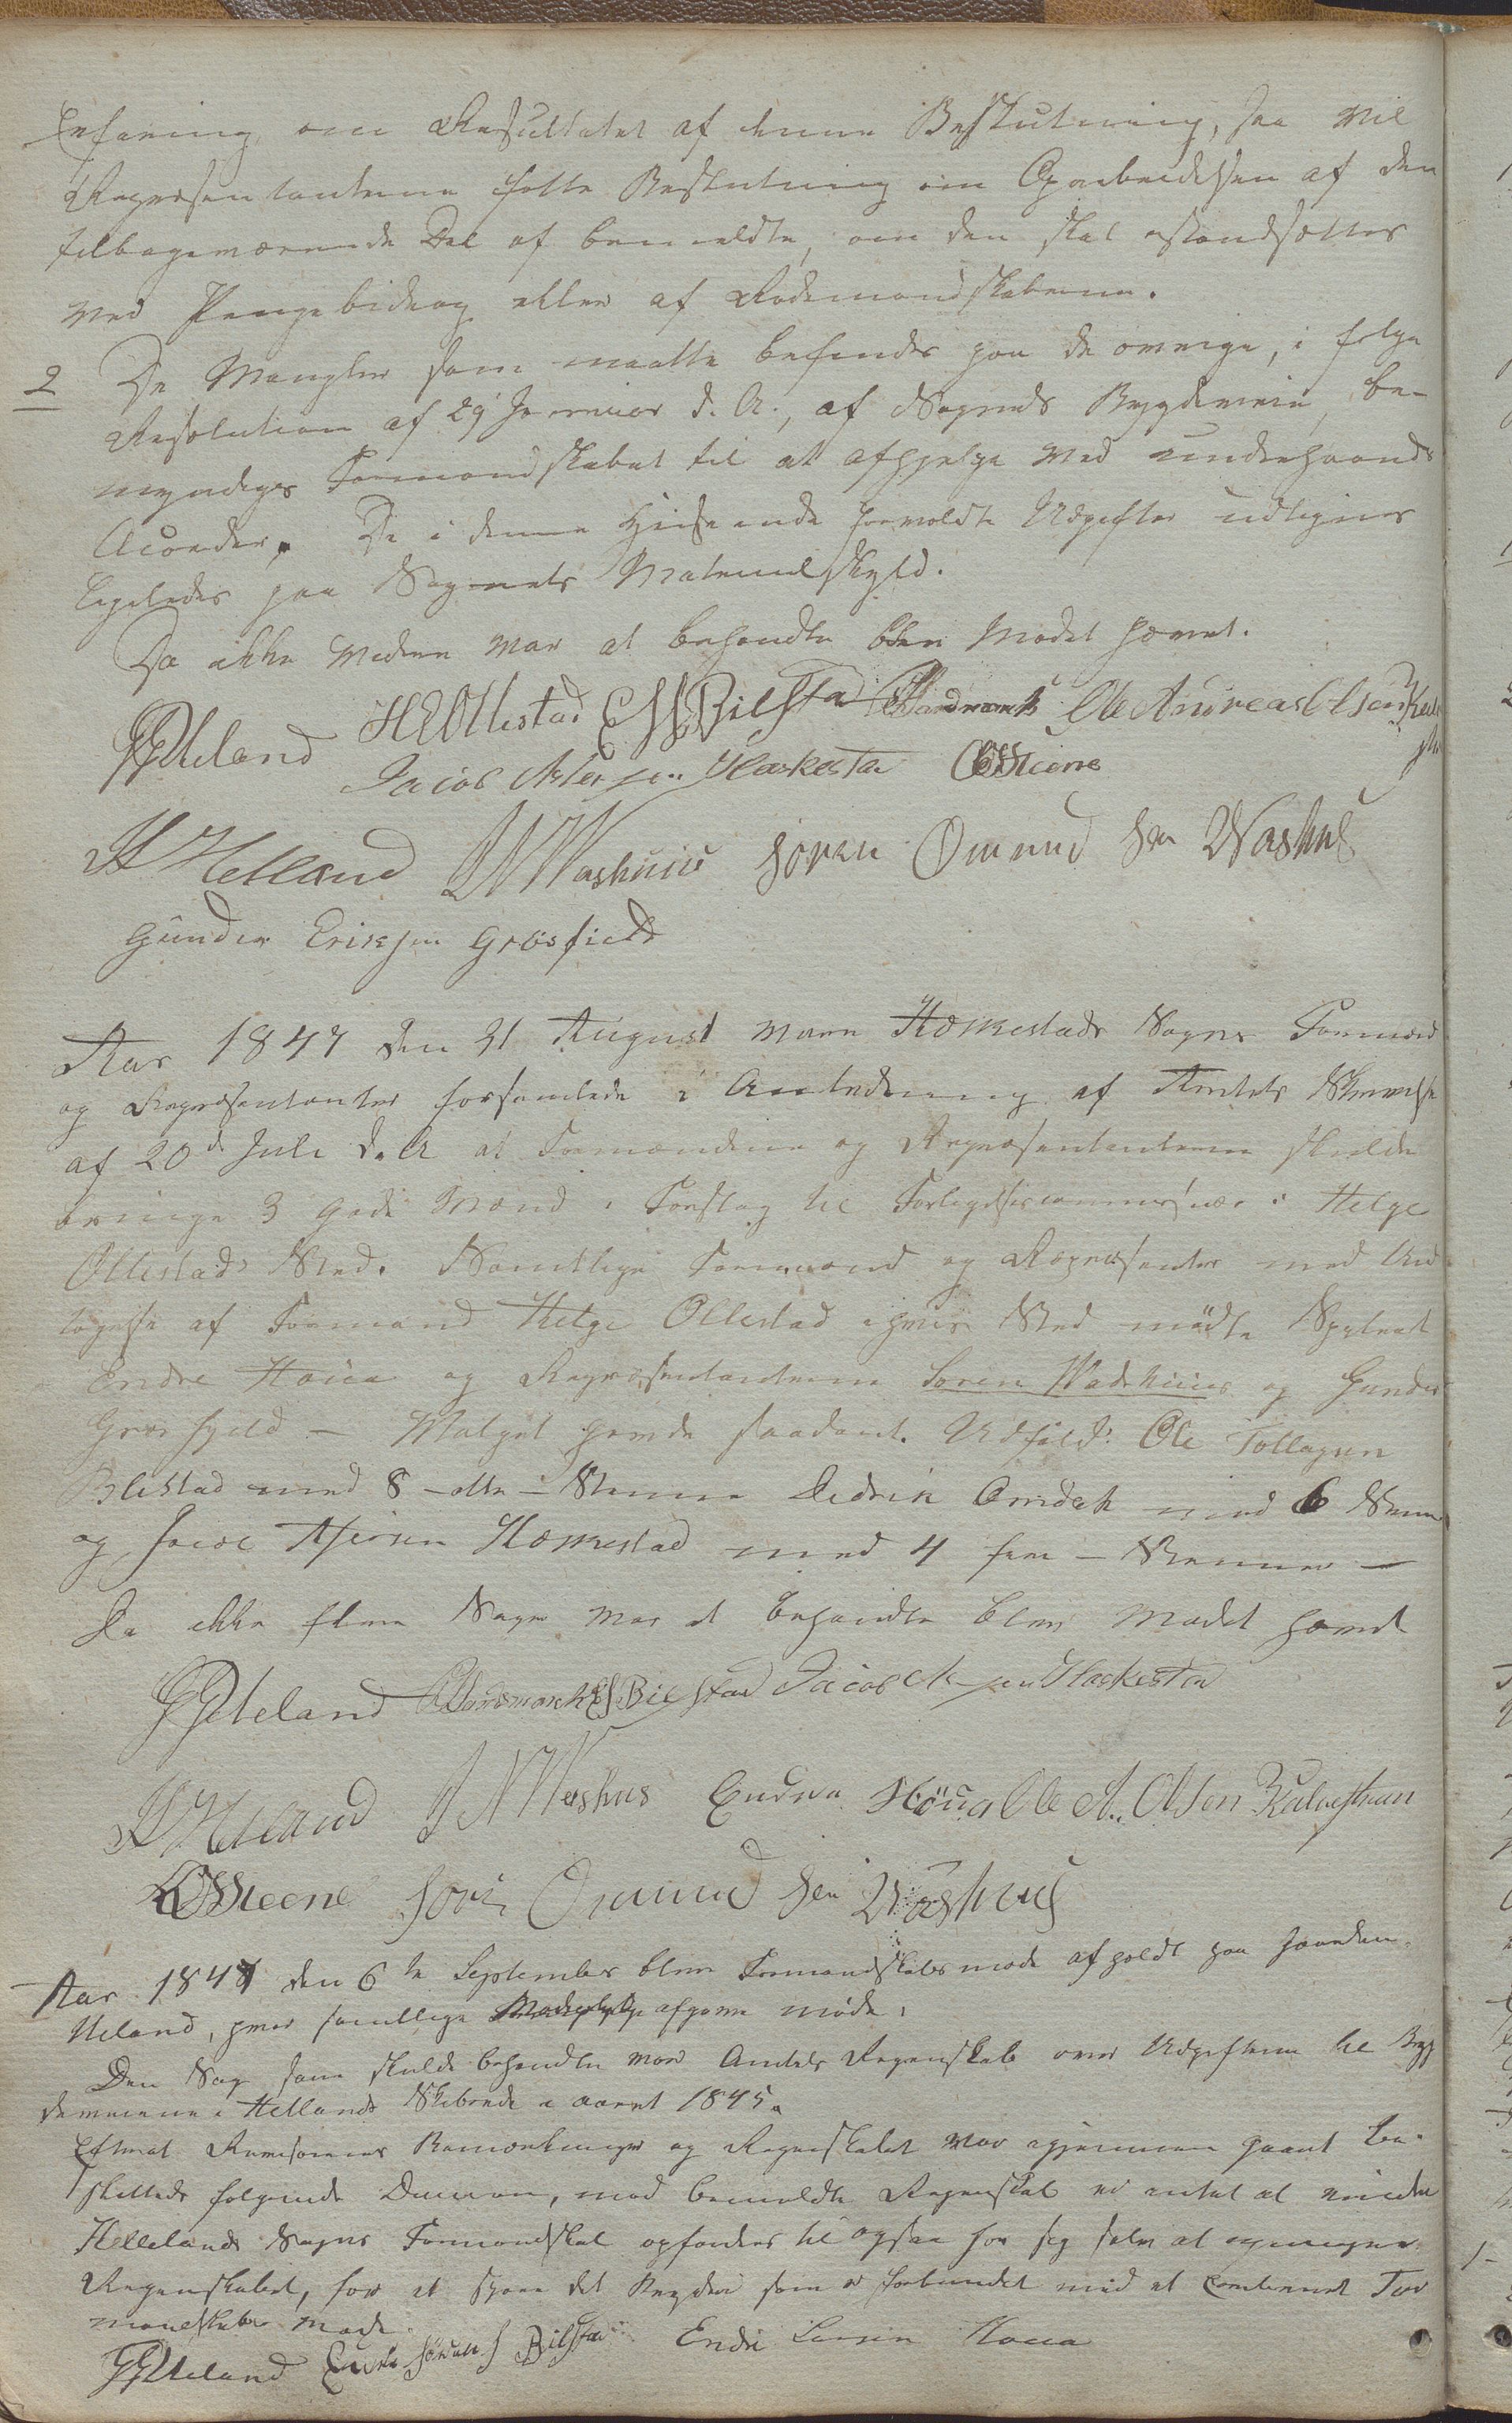 Erfaring om Resultatet af denne Beslutning, saa vil
Repræsentanterne fatte Beslutning om Oparbeidelsen af den
tilbageværende Del af bemeldte, om den skal istandsættes
ved Pengebidrag eller af Rodemandskaberne.
2 De Mangler som maatte befindes paa de øvrige, i følge
Resolution af 29 Januar d. A., af Sognets Bygdeveie, be-
myndiges Formandskabet til at afhjelpe ved underhaands
Accorder. De i denne Henseende forvoldte Udgifter udlignes
ligeledes paa Sognets Matriculskyld.
Da ikke videre var at behandle blev Mødet hævet.
HEOllestad ESBilsta Ole Andreas Olsen
Ueland Jacob Hæskesta OSSteene
Helland Washuus Søren Omund sen Washus
Gunder Eriksen Grøsfield
Aar 1847 den 31 August vare Heskestads Sogns Formænd
og Repræsentanter forsamlede i Anledning af Amtets Skrivelse
af 20d Juli d. A at Formændene og Repræsentanterne skulde
bringe 3 gode Mænd i Forslag til Forligelsescommissær i Helge
Ollestads Sted. Samtlige Formænd og Repræsenter med Und
tagelse af Formand Helge Ollestad i hvis Sted mødte
Endre Houa og Repræsentanterne Søren Wadshuus og Gunder
Grøsfjeld - Valget havde saadant Udfald: Ole Tollagsen
Blistad med 8 - otte - Stemmer Didrik Omdal med 6 Stemmer
og Jacob Heskestad med 4 fire - Stemmer -
Da ikke flere Sager var at behandle blev Mødet hævet
Ueland ESBilstad Jacob Hæskesta
Helland Washus Endre Houa Ole A. Olsen
OSSteene Søren Omund sen Washus
Aar 1847 den 6te September blev Formandskabsmøde afholdt paa Gaarden
Ueland, hvor samtlige afgave møde.
Den Sag som skulde behandles var Amtets Regnskab over Udgifterne til Byg
deveiene i Hellands Skibrede i aaret 1845.
Efterat Revisorens Bemærkninger og Regnskabet var igjennem gaaet be-
sluttedes følgende mod bemeldte Regnskab er intet at erindre
Hellelands Sogns Formandskab opfordres til ogsaa for sig selv at
Regnskabet, for at spare det Bryderi som er forbundet med et combineret For
mandskabs Møde.
Ueland Endre Sørens Bilsta Endre Larsen Houa